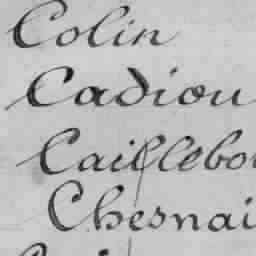 Colin
Cadiou
Caillebo
Chesnai